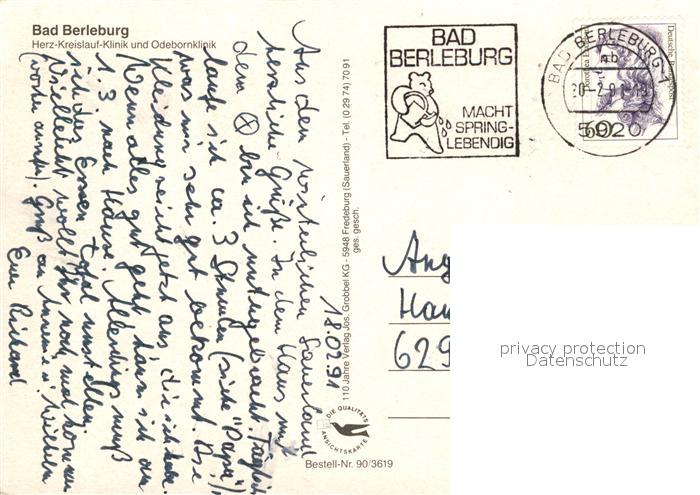 Bad Berleburg
Herz-Kreislauf-Klinik und Odebornklinik
18.02.91
Aus dem winterlichen Sauerland
herzliche Grüße. In dem Haus mit
dem ⊗ bin ich untergebracht. Täglich
laufe ich ca. 3 Stunden (siehe "Papa"),
was mir sehr gut bekommt. Die
Kleidung reicht jetzt aus, die ich habe.
Wenn alles gut geht kann ich am
1.3 nach Hause. Allerdings muß
ich das Essen total umstellen.
Vielleicht wollt Ihr noch mal kommen
(vorher anrufen). Gruß an
Euer Richard
110 Jahre Verlag Jos. Grobbel KG - 5948 Fredeburg (Sauerland) - Tel. (0 29 74) 70 91
ges. gesch.
DIE QUALITÄTS
ANSICHTSKARTE
Bestell-Nr. 90/3619
BAD
BERLEBURG
MACHT
SPRING-
LEBENDIG
BAD BERLEBURG 1
5920
Deutsche Bundespost
60
Ang
Hau
629
privacy protection
Datenschutz